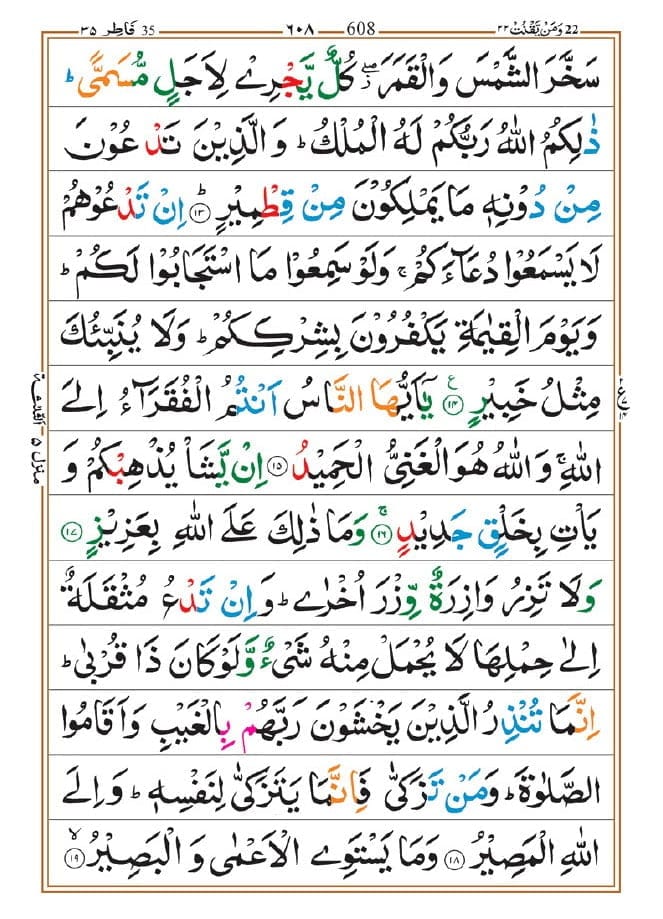 22 وَمَنْ يَّقْنُتْ ٢٢ 608 ٦٠٨ 35 فَاطِر ٣٥
سَخَّرَ الشَّمْسَ وَالْقَمَرَ ۖ٘ كُلٌّ يَّجْرِيْ لِاَجَلٍ مُّسَمًّى ؕ
ذٰلِكُمُ اللّٰهُ رَبُّكُمْ لَهُ الْمُلْكُ ؕ وَالَّذِيْنَ تَدْعُوْنَ
مِنْ دُوْنِهٖ مَا يَمْلِكُوْنَ مِنْ قِطْمِيْرٍ ؕ ۝١٣ اِنْ تَدْعُوْهُمْ
لَا يَسْمَعُوْا دُعَآءَكُمْ ۚ وَلَوْ سَمِعُوْا مَا اسْتَجَابُوْا لَكُمْ ؕ
وَيَوْمَ الْقِيٰمَةِ يَكْفُرُوْنَ بِشِرْكِكُمْ ؕ وَلَا يُنَبِّئُكَ
مِثْلُ خَبِيْرٍ ۝١٤ ع يٰۤاَيُّهَا النَّاسُ اَنْتُمُ الْفُقَرَآءُ اِلَى
اللّٰهِ ۚ وَاللّٰهُ هُوَ الْغَنِيُّ الْحَمِيْدُ ۝١٥ اِنْ يَّشَاْ يُذْهِبْكُمْ وَ
يَاْتِ بِخَلْقٍ جَدِيْدٍ ۚ ۝١٦ وَمَا ذٰلِكَ عَلَى اللّٰهِ بِعَزِيْزٍ ۝١٧
وَلَا تَزِرُ وَازِرَةٌ وِّزْرَ اُخْرٰى ؕ وَاِنْ تَدْعُ مُثْقَلَةٌ
اِلٰى حِمْلِهَا لَا يُحْمَلْ مِنْهُ شَيْءٌ وَّلَوْ كَانَ ذَا قُرْبٰى ؕ
اِنَّمَا تُنْذِرُ الَّذِيْنَ يَخْشَوْنَ رَبَّهُمْ بِالْغَيْبِ وَاَقَامُوا
الصَّلٰوةَ ؕ وَمَنْ تَزَكّٰى فَاِنَّمَا يَتَزَكّٰى لِنَفْسِهٖ ؕ وَاِلَى
اللّٰهِ الْمَصِيْرُ ۝١٨ وَمَا يَسْتَوِي الْاَعْمٰى وَالْبَصِيْرُ ۙ ۝١٩
منزل ٥